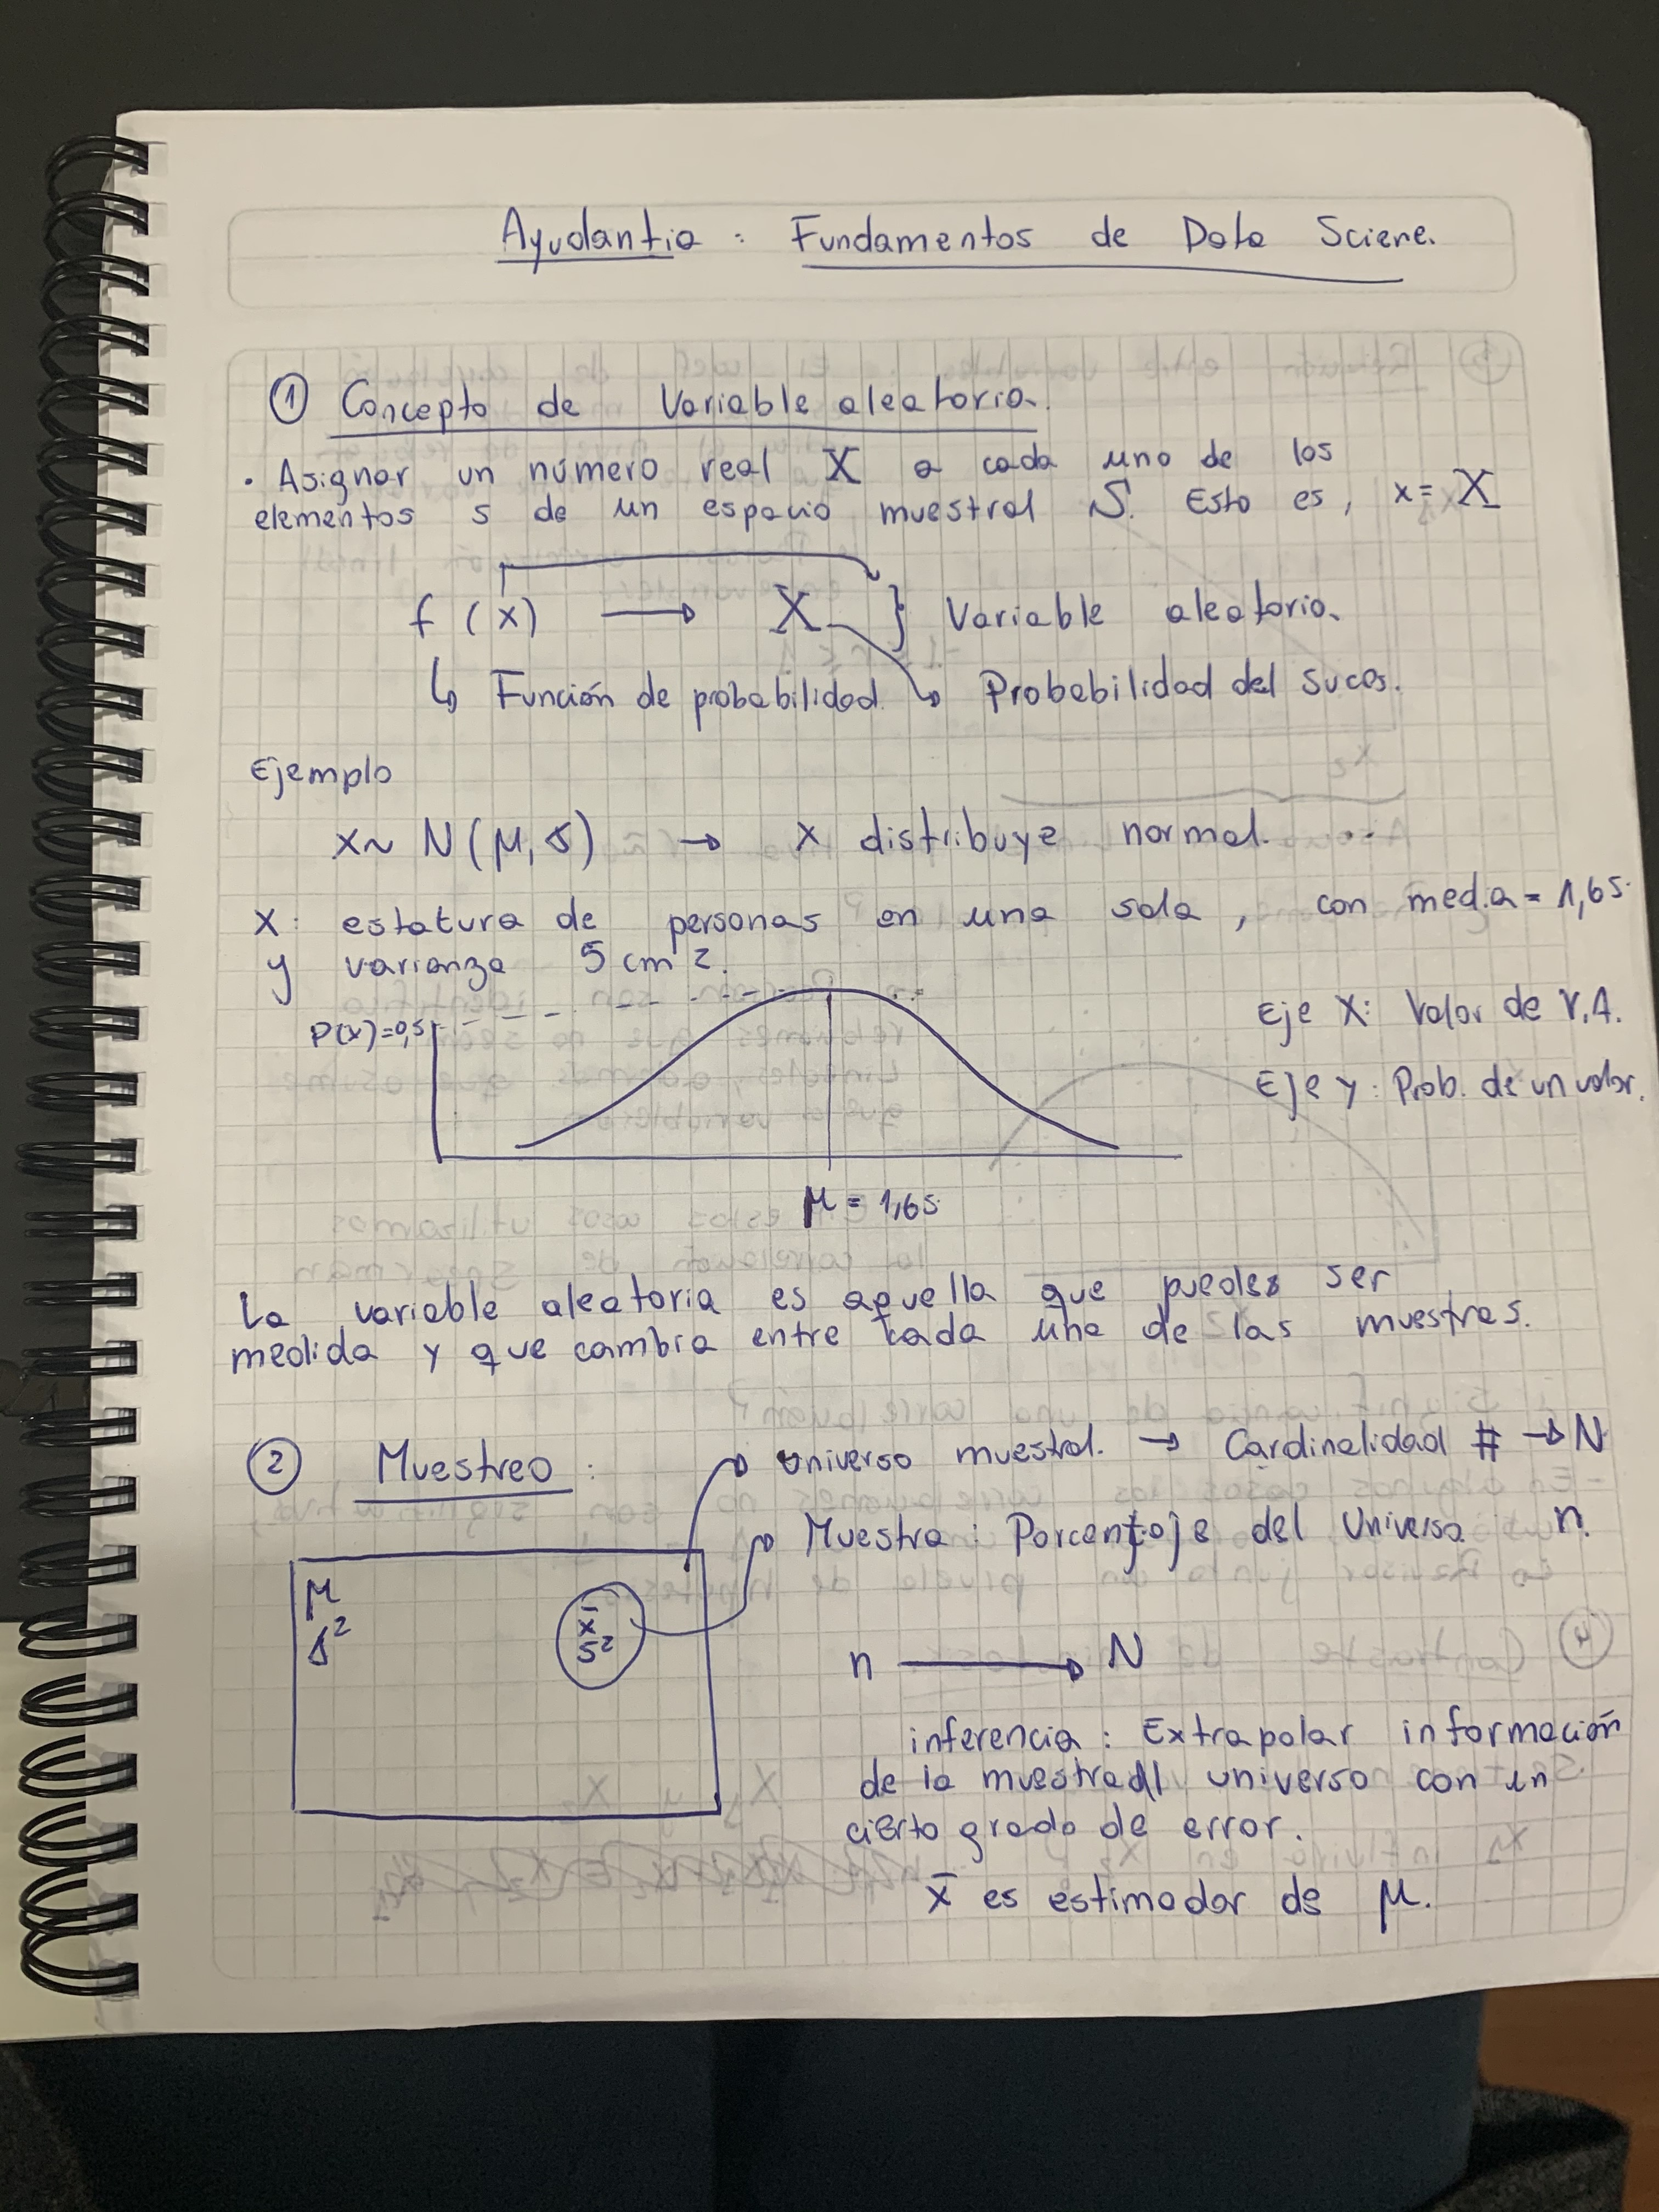 Ayudantia : Fundamentos de Data Sciene.
① Concepto de Variable aleatoria.
• Asignar un número real X a cada uno de los
elementos s de un espacio muestral S. Esto es, x = X
f (x) → X } Variable aleatoria.
↳ Función de probabilidad ↳ Probabilidad del suces.
Ejemplo
x ~ N(μ, σ) → x distribuye normal.
X: estatura de personas en una sala, con media = 1,65
y varianza 5 cm².
P(x)=0,5
Eje X: Valor de V.A.
Eje y: Prob. de un valor.
μ = 1,65
La variable aleatoria es aquella que puedes ser
medida y que cambia entre cada una de las muestras.
② Muestreo :
Universo muestral. → Cardinalidad # → N
Muestra : Porcentaje del Universo n.
μ
σ²
x̄
s²
n → N
inferencia : Extrapolar información
de la muestra al universo con un
cierto grado de error.
x̄ es estimador de μ.